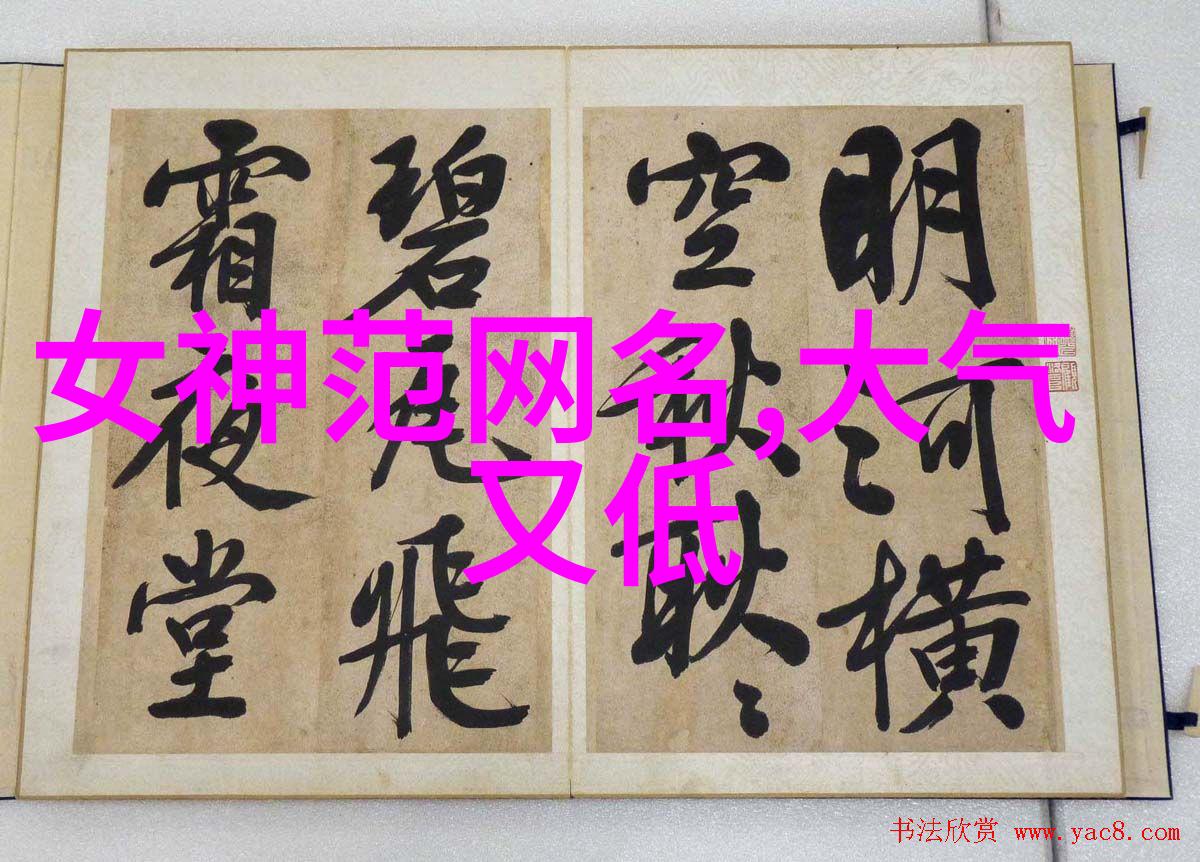 女神范网名,大气
又低
明河横
空耿〻
碧飛
霜夜堂
书法欣赏 www.yac8.com